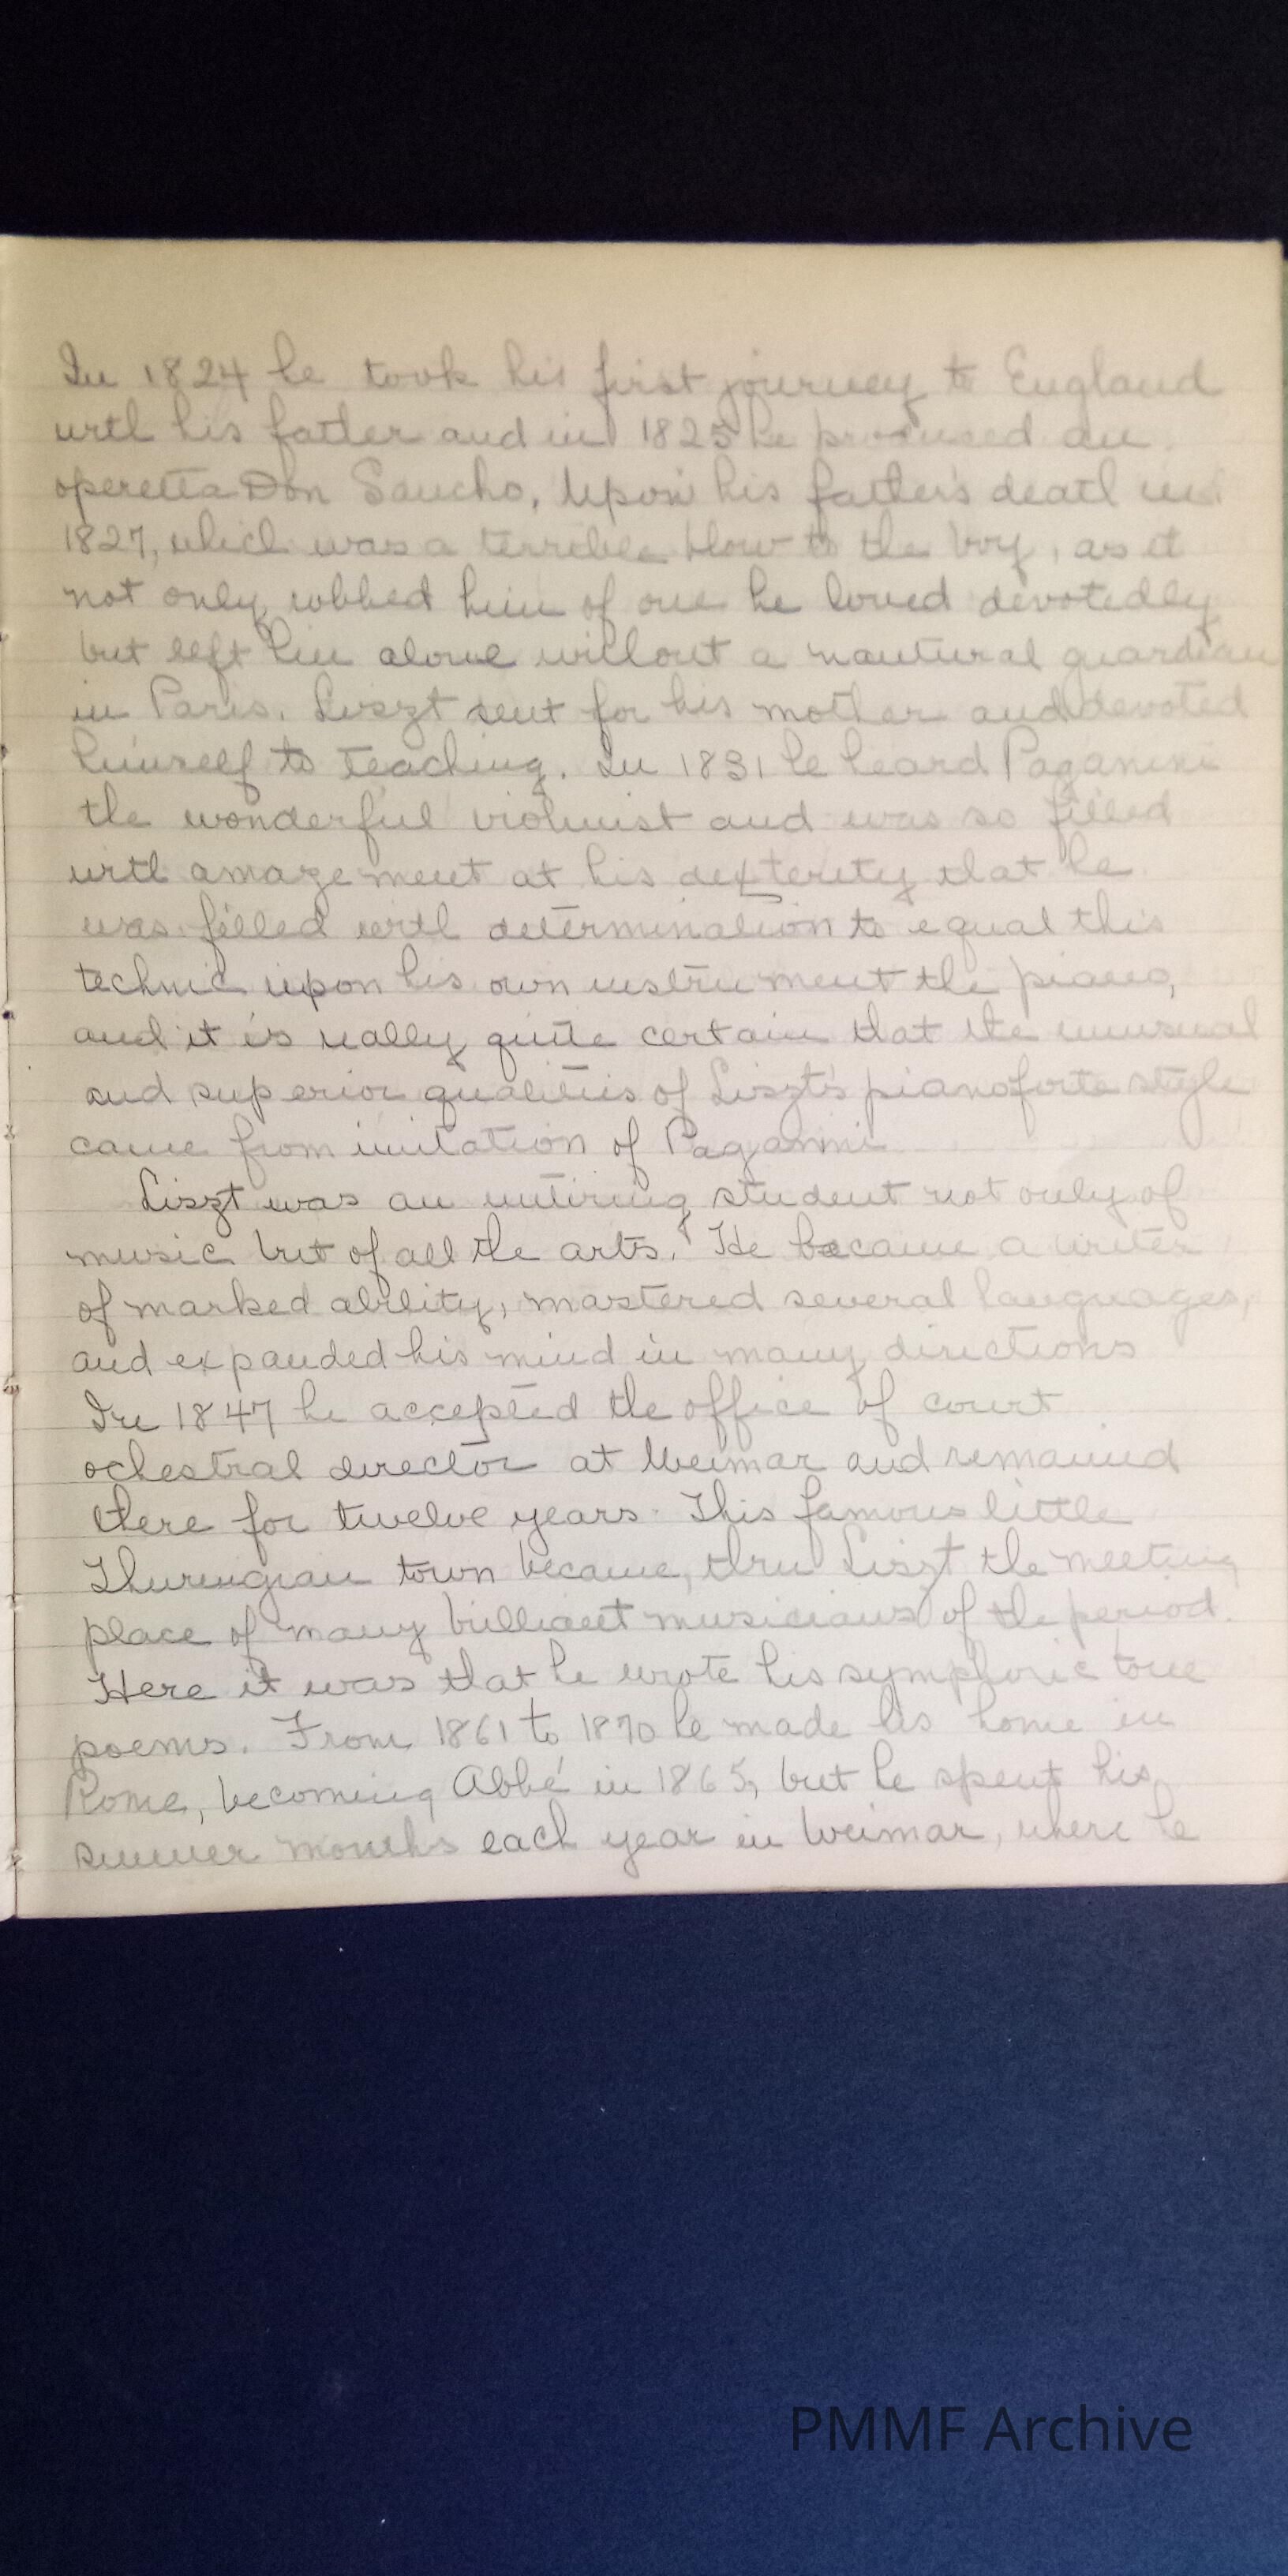 In 1824 he took his first journey to England
with his father and in 1825 he produced an
operetta Don Sancho. Upon his father's death in
1827, which was a terrible blow to the boy, as it
not only robbed him of one he loved devotedly
but left him alone without a nautural guardian
in Paris. Liszt sent for his mother and devoted
himself to teaching. In 1831 he heard Paganini
the wonderful violinist and was so filled
with amazement at his dexterity that he
was filled with determination to equal this
technic upon his own instrument the piano,
and it is really quite certain that the unusual
and superior qualities of Liszt's pianoforte style
came from imitation of Paganini
Liszt was an untiring student not only of
music but of all the arts. He became a writer
of marked ability, mastered several languages,
and expanded his mind in many directions
In 1847 he accepted the office of court
ochestral director at Weimar and remained
there for twelve years. This famous little
Thuringian town became, thru Liszt the meeting
place of many brilliant musicians of the period.
Here it was that he wrote his symphonic tone
poems. From 1861 to 1870 he made his home in
Rome, becoming Abbé in 1865, but he spent his
summer months each year in Weimar, where he
PMMF Archive